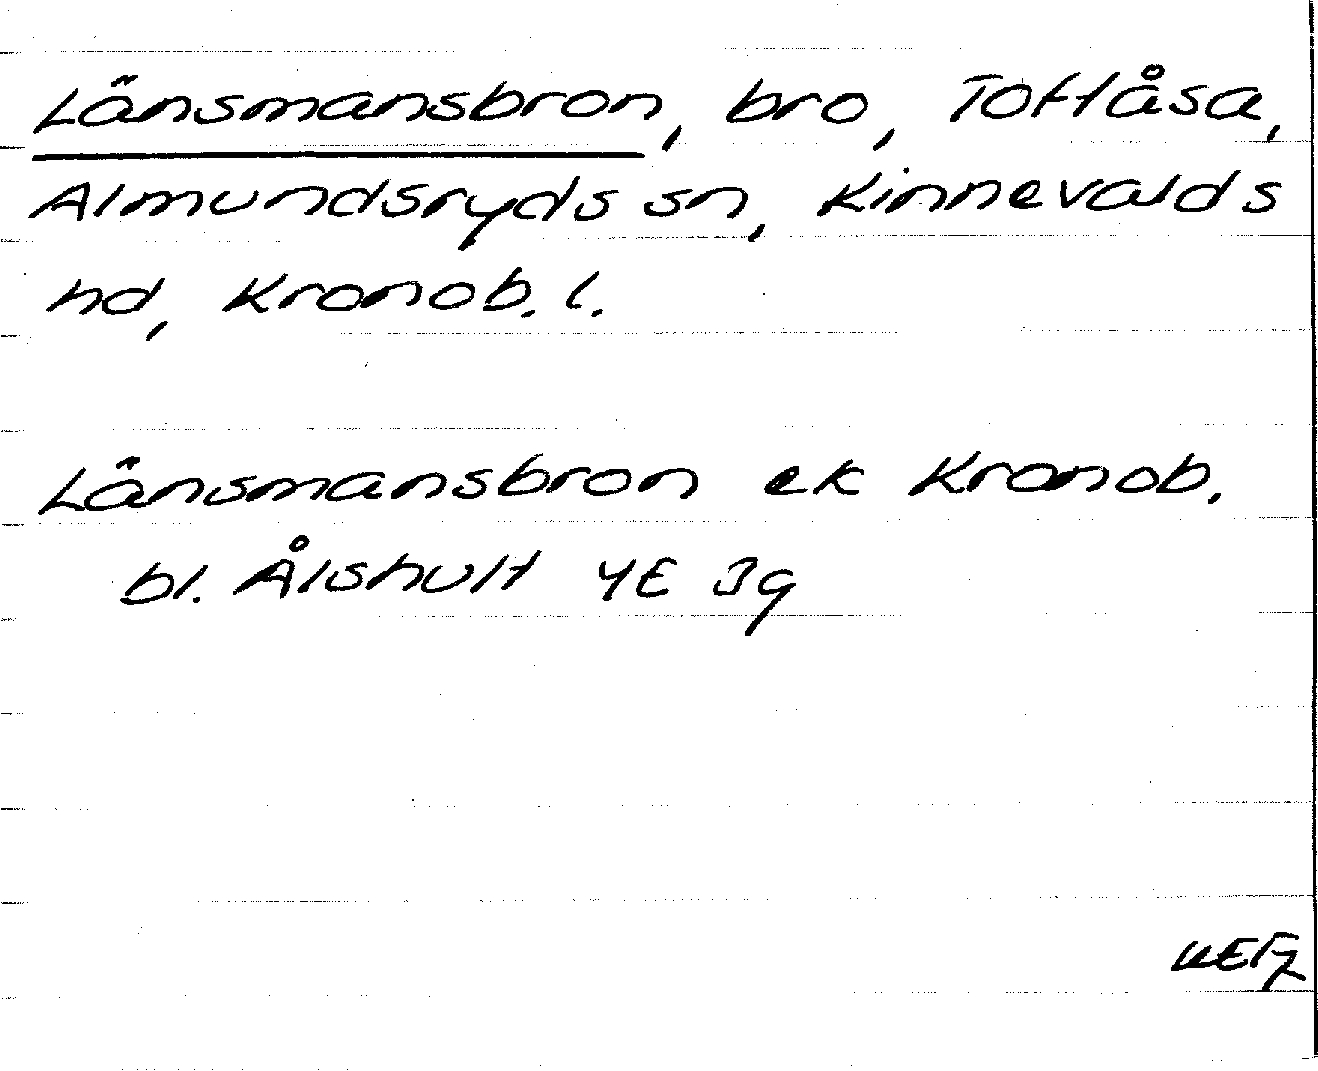 Länsmansbron, bro, Toftåsa,
Almundsryds sn, Kinnevalds
hd, Kronob. l.
Länsmansbron ek Kronob.
bl. Ålshult 4E 3g